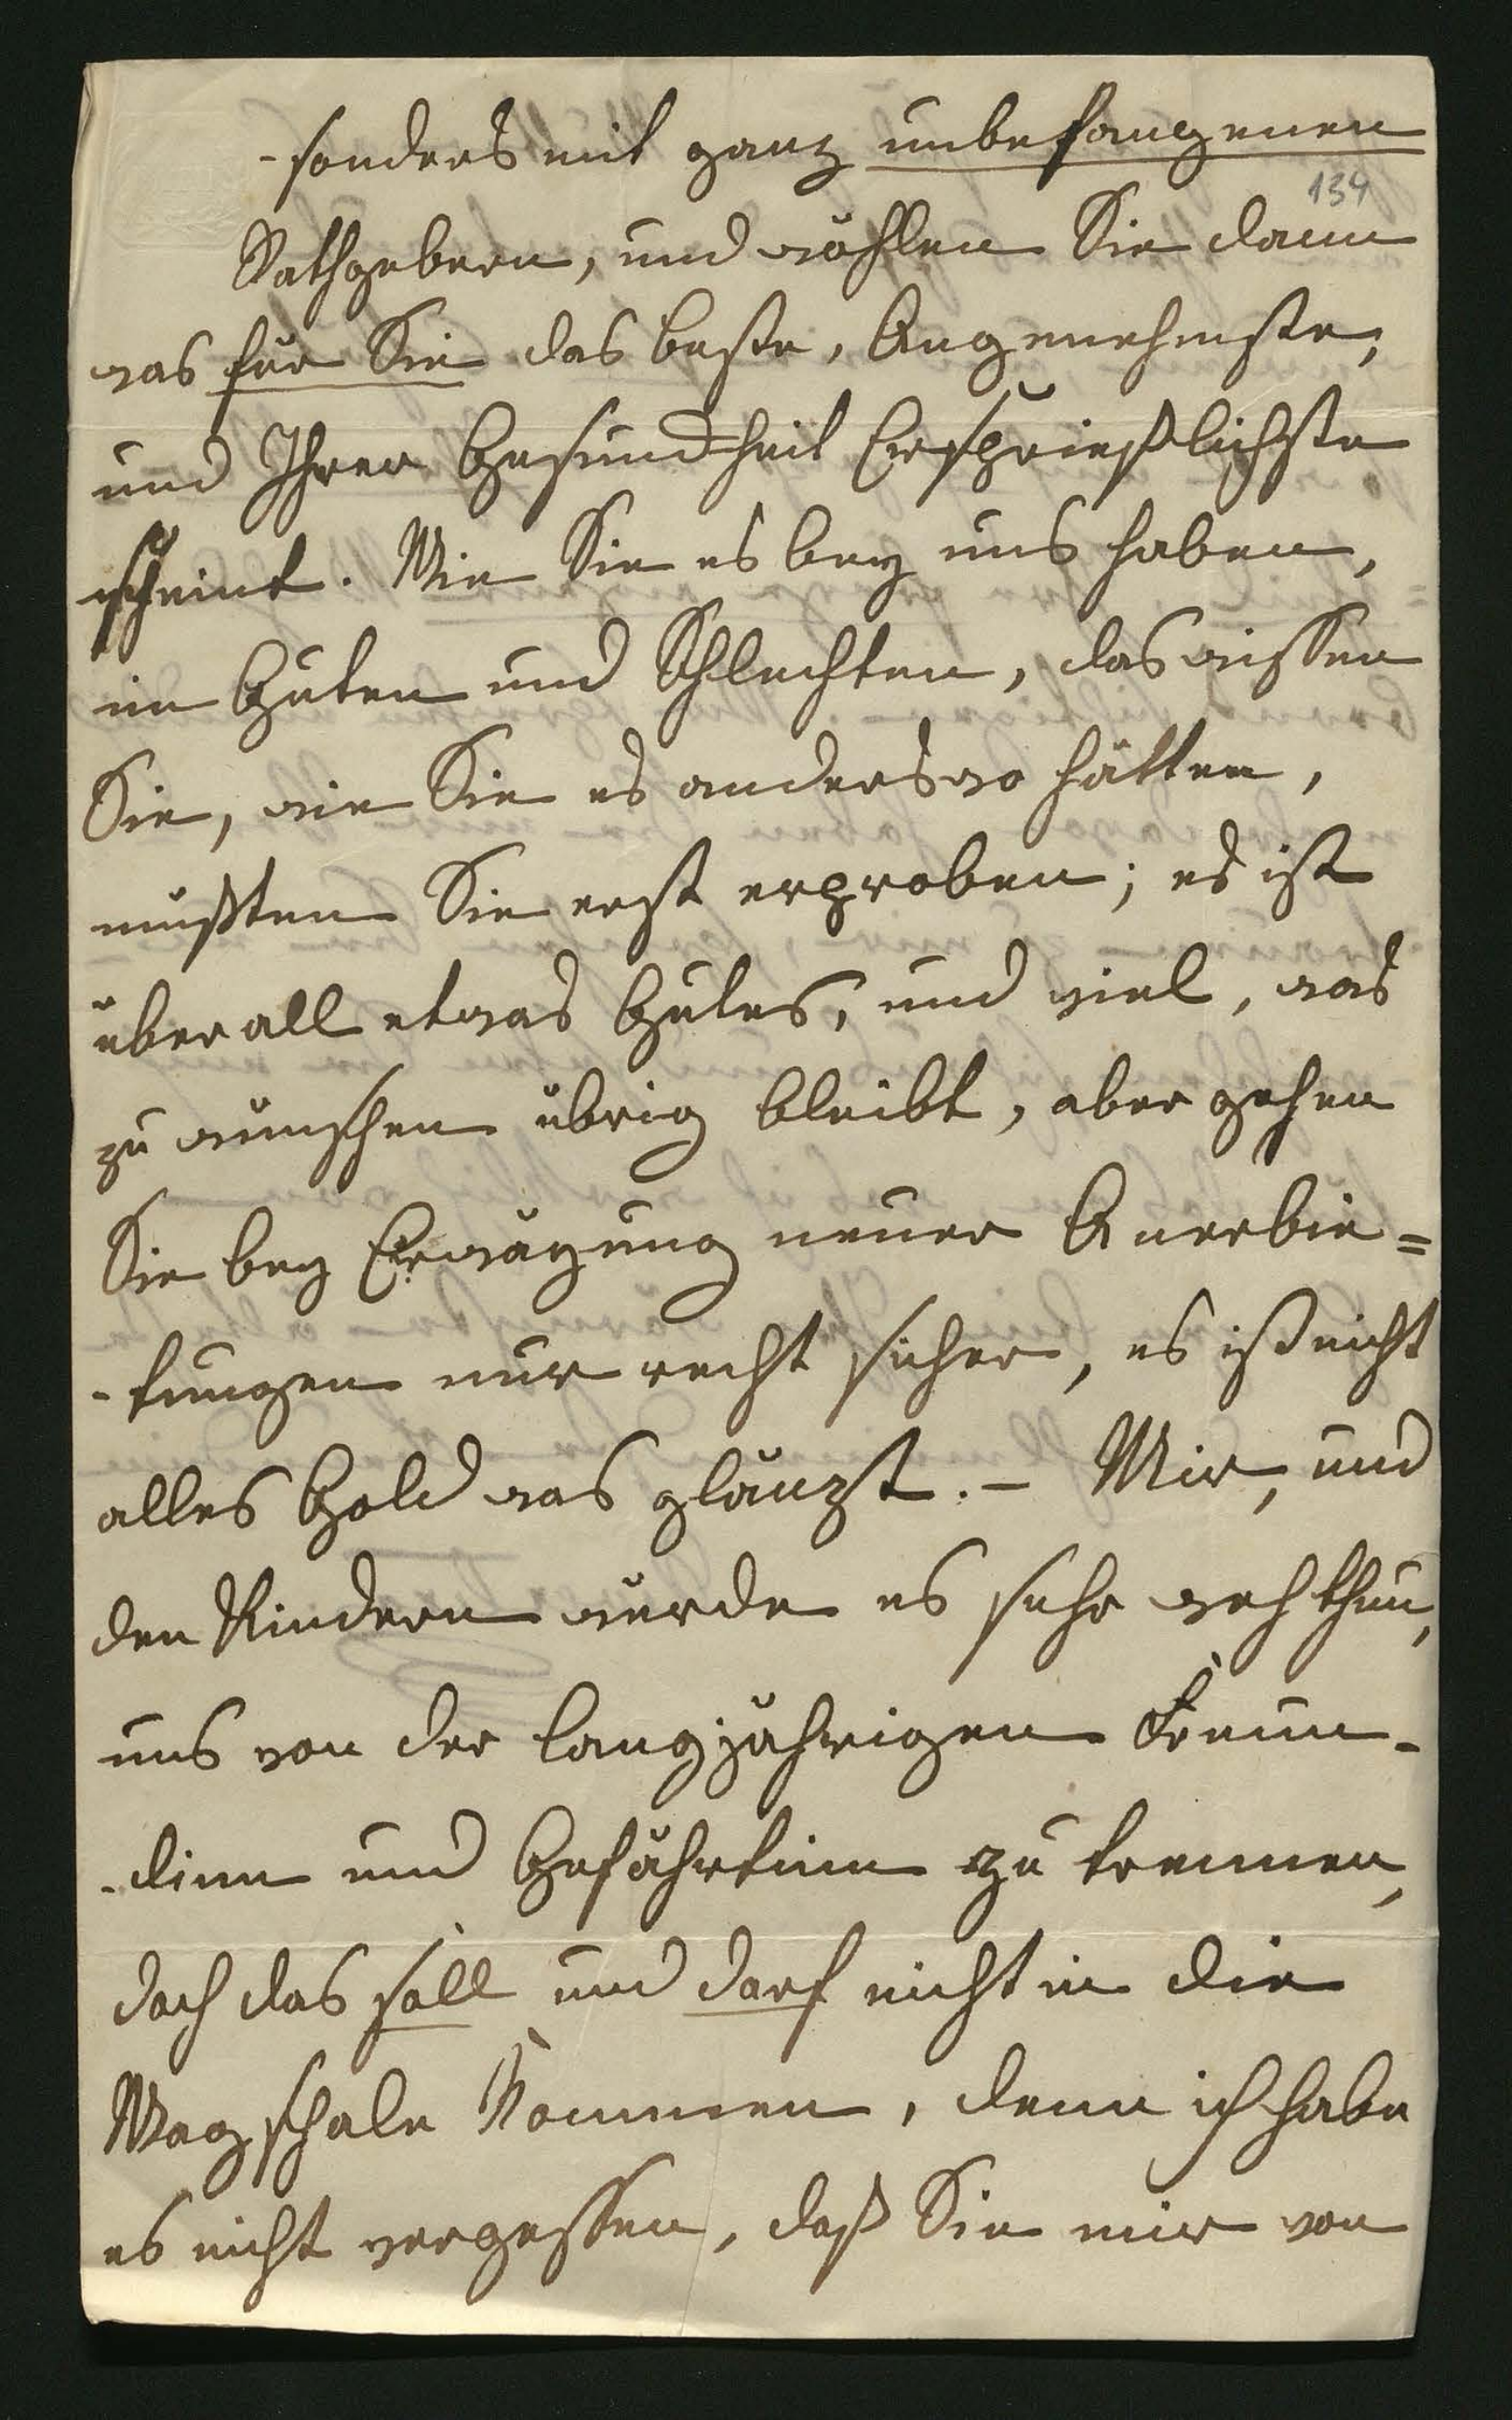 -sonders mit ganz unbefangenen
134
Rathgebern, und wählen Sie dann
was für Sie das beste, Angenehmste,
und Ihrer Gesundheit Ersprießlichste
scheint. Wie Sie es bey uns haben,
im Guten und Schlechten, das wissen
Sie, wie Sie es anderswo hätten,
müßten Sie erst erproben; es ist
überall etwas Gutes, und viel, was
zu wünschen übrig bleibt, aber gehen
Sie bey Erwägung neuer Anerbie=
-tungen nur recht sicher, es ist nicht
alles Gold was glänzt. – Mir, und
den Kindern würde es sehr weh thun,
uns von der langjährigen Freun-
-dinn und Gefährtinn zu trennen,
doch das soll und darf nicht in die
Wagschale kommen, denn ich habe
es nicht vergessen, daß Sie mir von